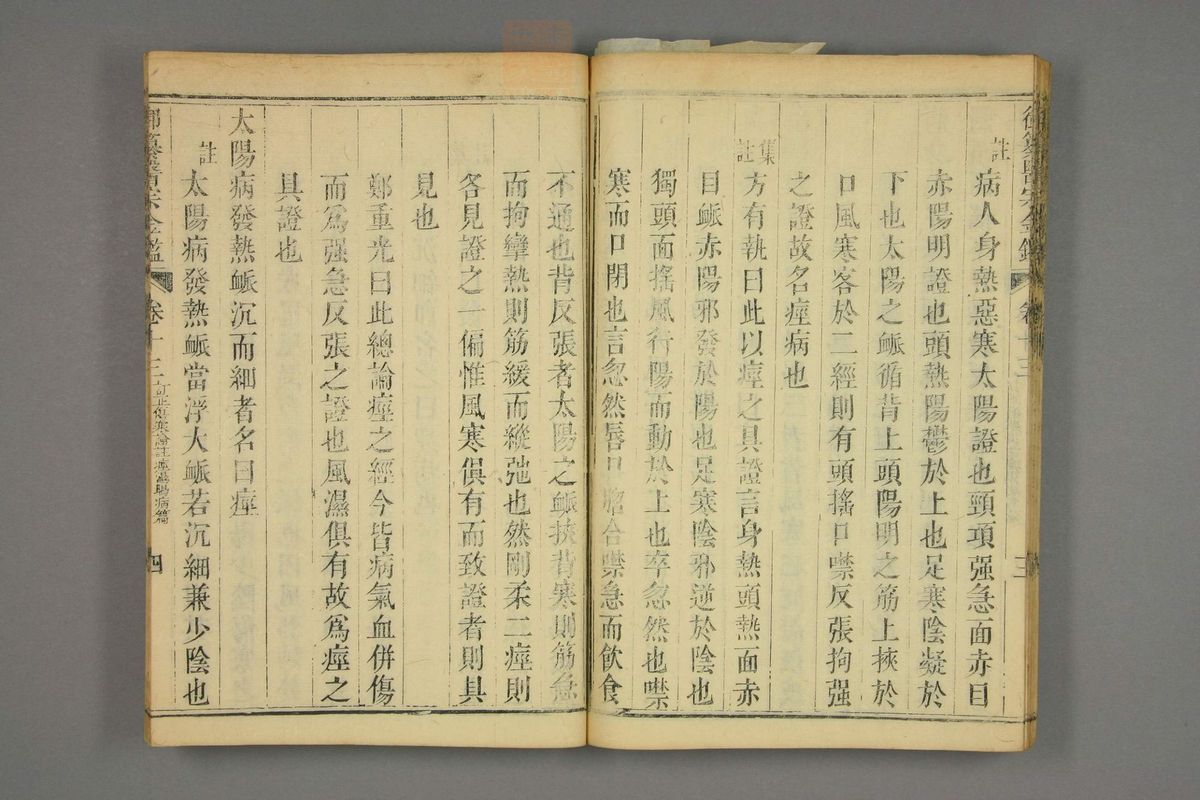 御纂醫宗金鑑 卷十三 三
註
病人身熱惡寒太陽證也頸項强急面赤目
赤陽明證也頭熱陽鬱於上也足寒陰凝於
下也太陽之脈循背上頭陽明之筋上挾於
口風寒客於二經則有頭搖口噤反張拘强
之證故名痙病也
集註
方有執曰此以痙之具證言身熱頭熱面赤
目脈赤陽邪發於陽也足寒陰邪逆於陰也
獨頭面搖風行陽而動於上也卒忽然也噤
寒而口閉也言忽然唇口㗋合噤急而飲食
不通也背反張者太陽之脈挾背寒則筋急
而拘攣熱則筋緩而縱弛也然剛柔二痙則
各見證之一偏惟風寒俱有而致證者則具
見也
鄭重光曰此總論痙之經今皆病氣血併傷
而爲强急反張之證也風濕俱有故爲痙之
具證也
太陽病發熱脈沉而細者名曰痙
註
太陽病發熱脈當浮大脈若沉細兼少陰也
御纂醫宗金鑑 卷十三 訂正傷寒論註痙濕暍病篇 四